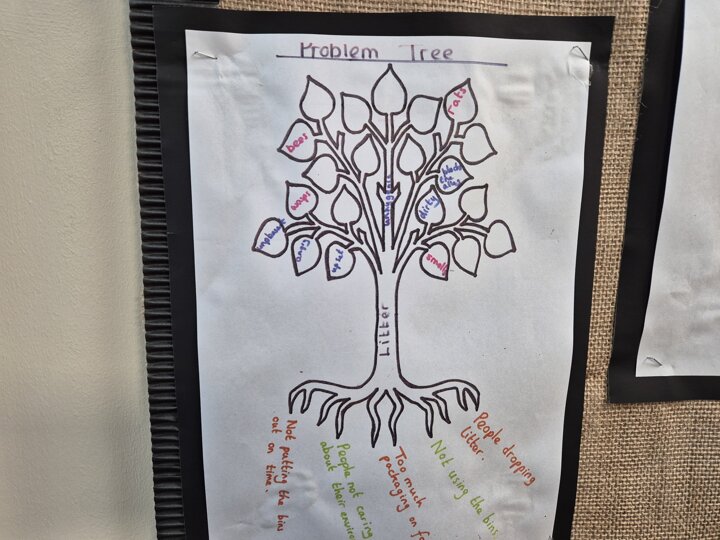 Problem Tree
rats
bees
blocks
the
alley
wasps
dirty
unpleasant
angry
upset
smells
Litter
Not putting the bins
out on time.
People not caring
about their enviro
Too much
packaging on
Not using the bins
People dropping
litter.